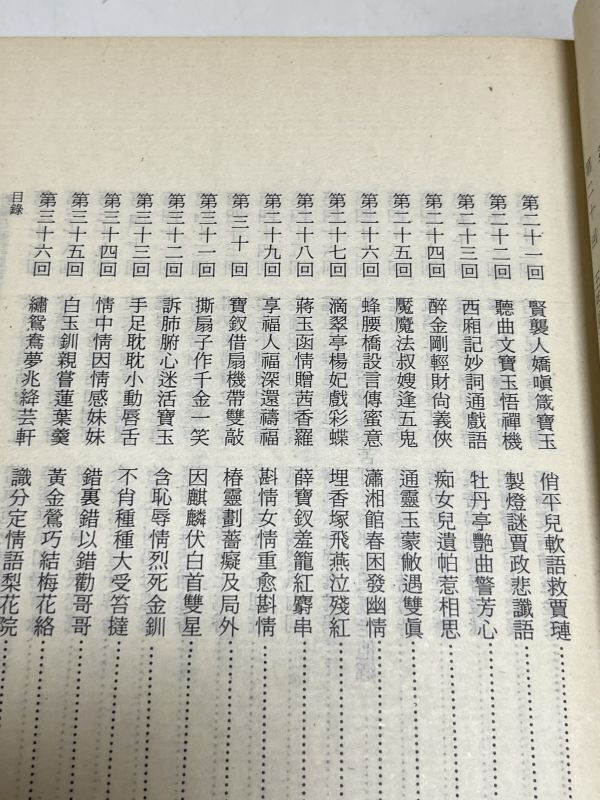 第二十一回　賢襲人嬌嗔箴寶玉　俏平兒軟語救賈璉
第二十二回　聽曲文寶玉悟禪機　製燈謎賈政悲讖語
第二十三回　西廂記妙詞通戲語　牡丹亭艷曲警芳心
第二十四回　醉金剛輕財尙義俠　痴女兒遺帕惹相思
第二十五回　魘魔法叔嫂逢五鬼　通靈玉蒙敝遇雙眞
第二十六回　蜂腰橋設言傳蜜意　瀟湘館春困發幽情
第二十七回　滴翠亭楊妃戲彩蝶　埋香塚飛燕泣殘紅
第二十八回　蔣玉函情贈茜香羅　薛寶釵羞籠紅麝串
第二十九回　享福人福深還禱福　斟情女情重愈斟情
第三十回　寶釵借扇機帶雙敲　椿靈劃薔癡及局外
第三十一回　撕扇子作千金一笑　因麒麟伏白首雙星
第三十二回　訴肺腑心迷活寶玉　含恥辱情烈死金釧
第三十三回　手足耽耽小動唇舌　不肖種種大受笞撻
第三十四回　情中情因情感妹妹　錯裏錯以錯勸哥哥
第三十五回　白玉釧親嘗蓮葉羹　黃金鶯巧結梅花絡
第三十六回　繡鴛鴦夢兆絳芸軒　識分定情語梨花院
目錄